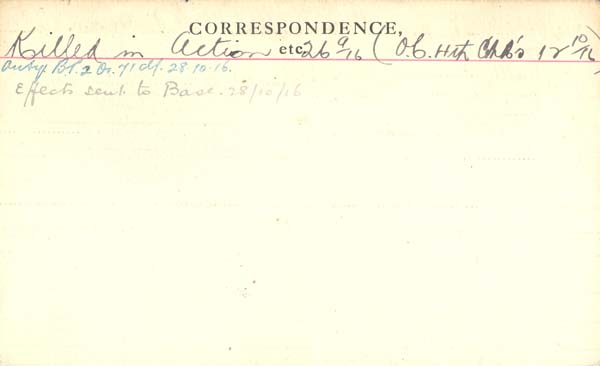 CORRESPONDENCE,
etc.
Killed in Action 26/9/16 (O.C. 44th Cas's 12/10/16)
Auty Pt. 2 Or. 71 df. 28.10.16.
Effects sent to Base. 28/10/16